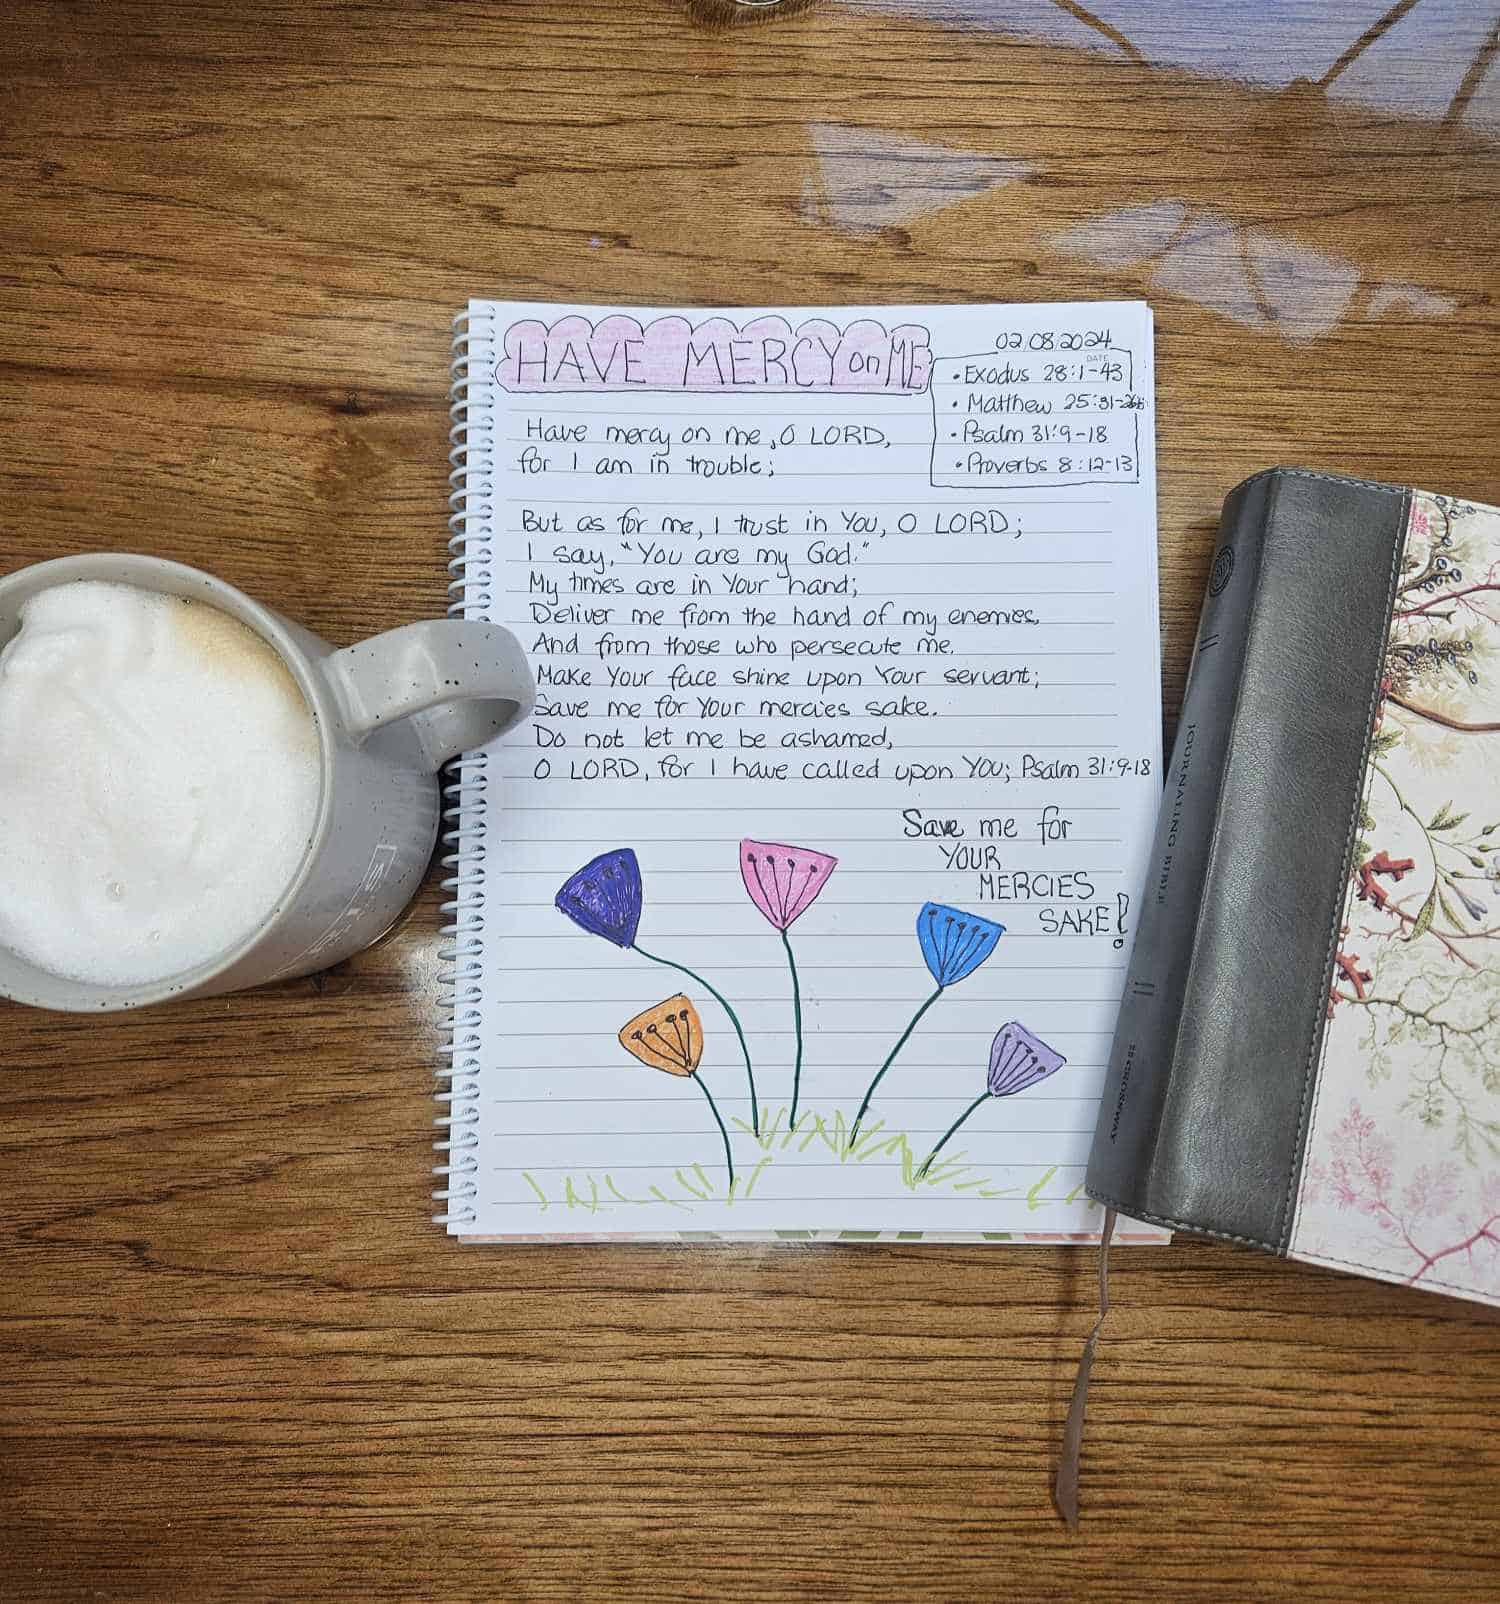 HAVE MERCY on ME
02.08.2024
DATE
• Exodus 28:1-43
• Matthew 25:31-
• Psalm 31:9-18
• Proverbs 8:12-13
Have mercy on me, O LORD,
for I am in trouble;
But as for me, I trust in You, O LORD;
I say, "You are my God."
My times are in Your hand;
Deliver me from the hand of my enemies,
And from those who persecute me.
Make Your face shine upon Your servant;
Save me for Your mercies sake.
Do not let me be ashamed,
O LORD, for I have called upon YOU; Psalm 31:9-18
Save me for
YOUR
MERCIES
SAKE!
JOURNALING BIBLE
CROSSWAY